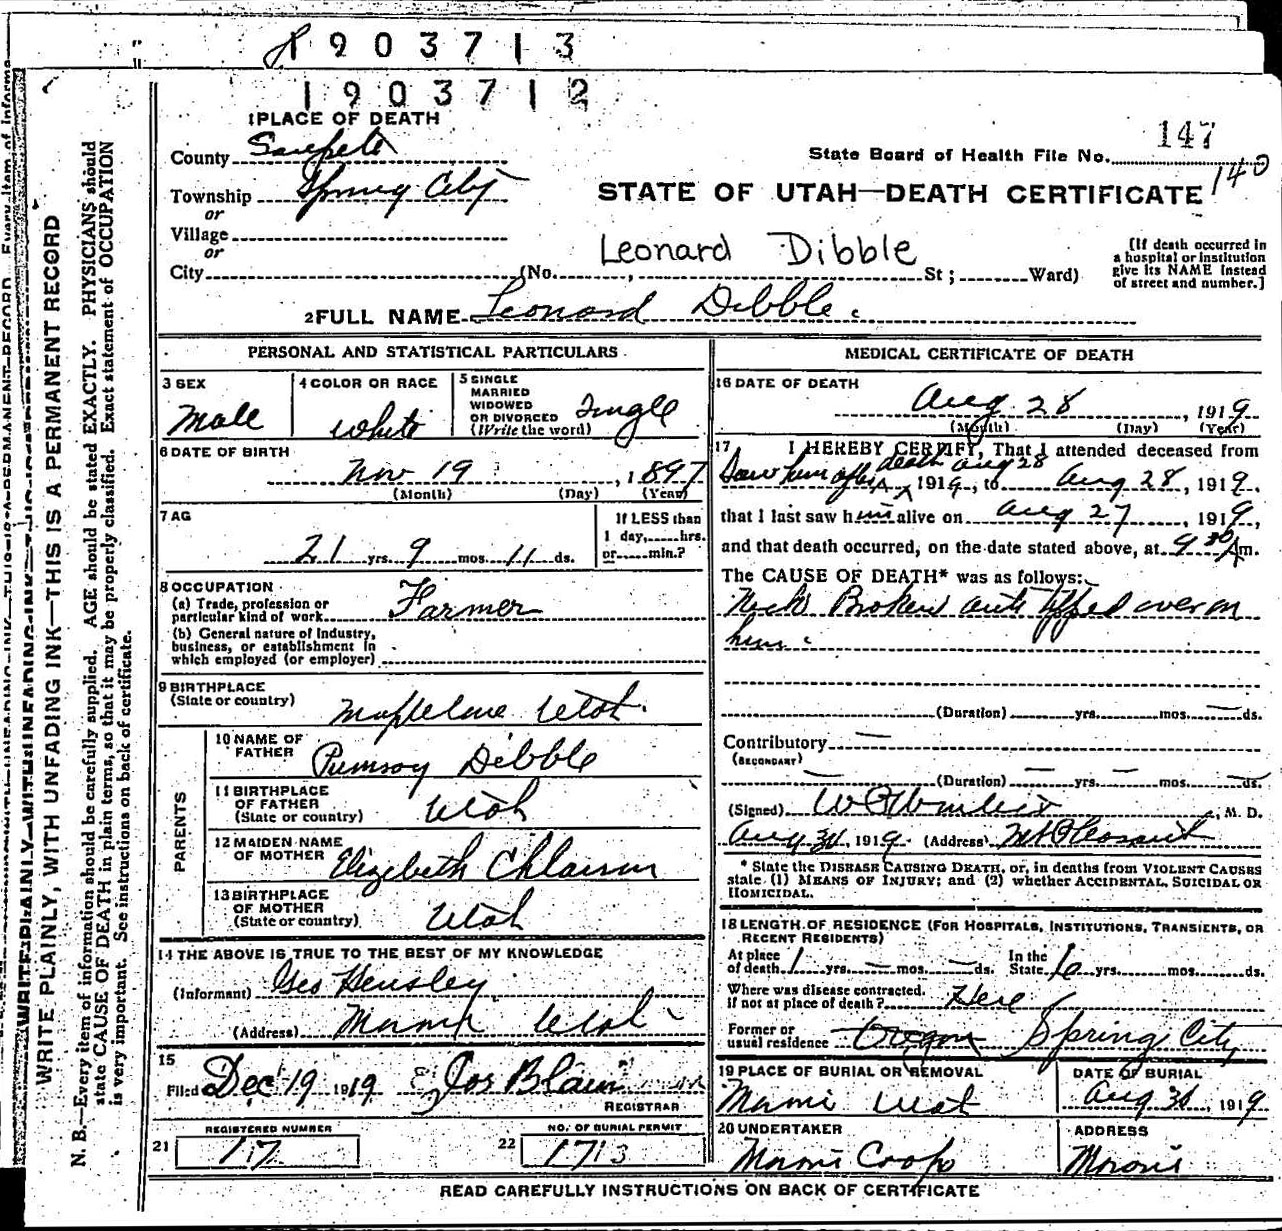 1903713
1903712
1 PLACE OF DEATH
147
County Sanpete
State Board of Health File No.
140
Township Spring City
STATE OF UTAH—DEATH CERTIFICATE
or
Village
or
Leonard Dibble
[If death occurred in
a hospital or institution
give its NAME instead
of street and number.]
City (No. , St ; Ward)
2 FULL NAME Leonard Dibble.
PERSONAL AND STATISTICAL PARTICULARS
3 SEX
Male
4 COLOR OR RACE
White
5 SINGLE
MARRIED
WIDOWED
OR DIVORCED
(Write the word)
Single
6 DATE OF BIRTH
Nov 19 , 1897
(Month) (Day) (Year)
7 AG
21 yrs. 9 mos. 11 ds.
If LESS than
1 day, hrs.
or min.?
8 OCCUPATION
(a) Trade, profession or
particular kind of work Farmer
(b) General nature of Industry,
business, or establishment in
which employed (or employer)
9 BIRTHPLACE
(State or country)
Utah.
PARENTS
10 NAME OF
FATHER
Dibble
11 BIRTHPLACE
OF FATHER
(State or country)
Utah
12 MAIDEN NAME
OF MOTHER
Elizabeth
13 BIRTHPLACE
OF MOTHER
(State or country)
Utah
14 THE ABOVE IS TRUE TO THE BEST OF MY KNOWLEDGE
(Informant) Geo Hensley
(Address) Moroni Utah
15
Filed Dec 19 1919 Jos Blain
REGISTRAR
REGISTERED NUMBER
21 17
NO. OF BURIAL PERMIT
22 1713
MEDICAL CERTIFICATE OF DEATH
16 DATE OF DEATH
Aug 28 , 1919
(Month) (Day) (Year)
17 I HEREBY CERTIFY, That I attended deceased from
Saw him after death Aug 28 1919, to Aug 28, 1919.
that I last saw him alive on Aug 27 , 1919,
and that death occurred, on the date stated above, at 9 30 Am.
The CAUSE OF DEATH* was as follows:
Neck Broken auto tipped over on
him.
(Duration) yrs. mos. ds.
Contributory
(SECONDARY)
(Duration) yrs. mos. ds.
(Signed) , M. D.
Aug 30, 1919. (Address) Mt Pleasant
* State the DISEASE CAUSING DEATH, or, in deaths from VIOLENT CAUSES
state (1) MEANS OF INJURY; and (2) whether ACCIDENTAL, SUICIDAL OR
HOMICIDAL.
18 LENGTH OF RESIDENCE (FOR HOSPITALS, INSTITUTIONS, TRANSIENTS, OR
RECENT RESIDENTS)
At place
of death 1 yrs. mos. ds.
In the
State yrs. mos. ds.
Where was disease contracted.
if not at place of death? Here
Former or
usual residence Oregon Spring City
19 PLACE OF BURIAL OR REMOVAL
Moroni Utah
DATE OF BURIAL
Aug 30, 1919
20 UNDERTAKER
Moroni Coop
ADDRESS
Moroni
READ CAREFULLY INSTRUCTIONS ON BACK OF CERTIFICATE
WRITE PLAINLY, WITH UNFADING INK—THIS IS A PERMANENT RECORD
N. B.—Every item of information should be carefully supplied. AGE should be stated EXACTLY. PHYSICIANS should
state CAUSE OF DEATH in plain terms, so that it may be properly classified. Exact statement of OCCUPATION
is very important. See instructions on back of certificate.